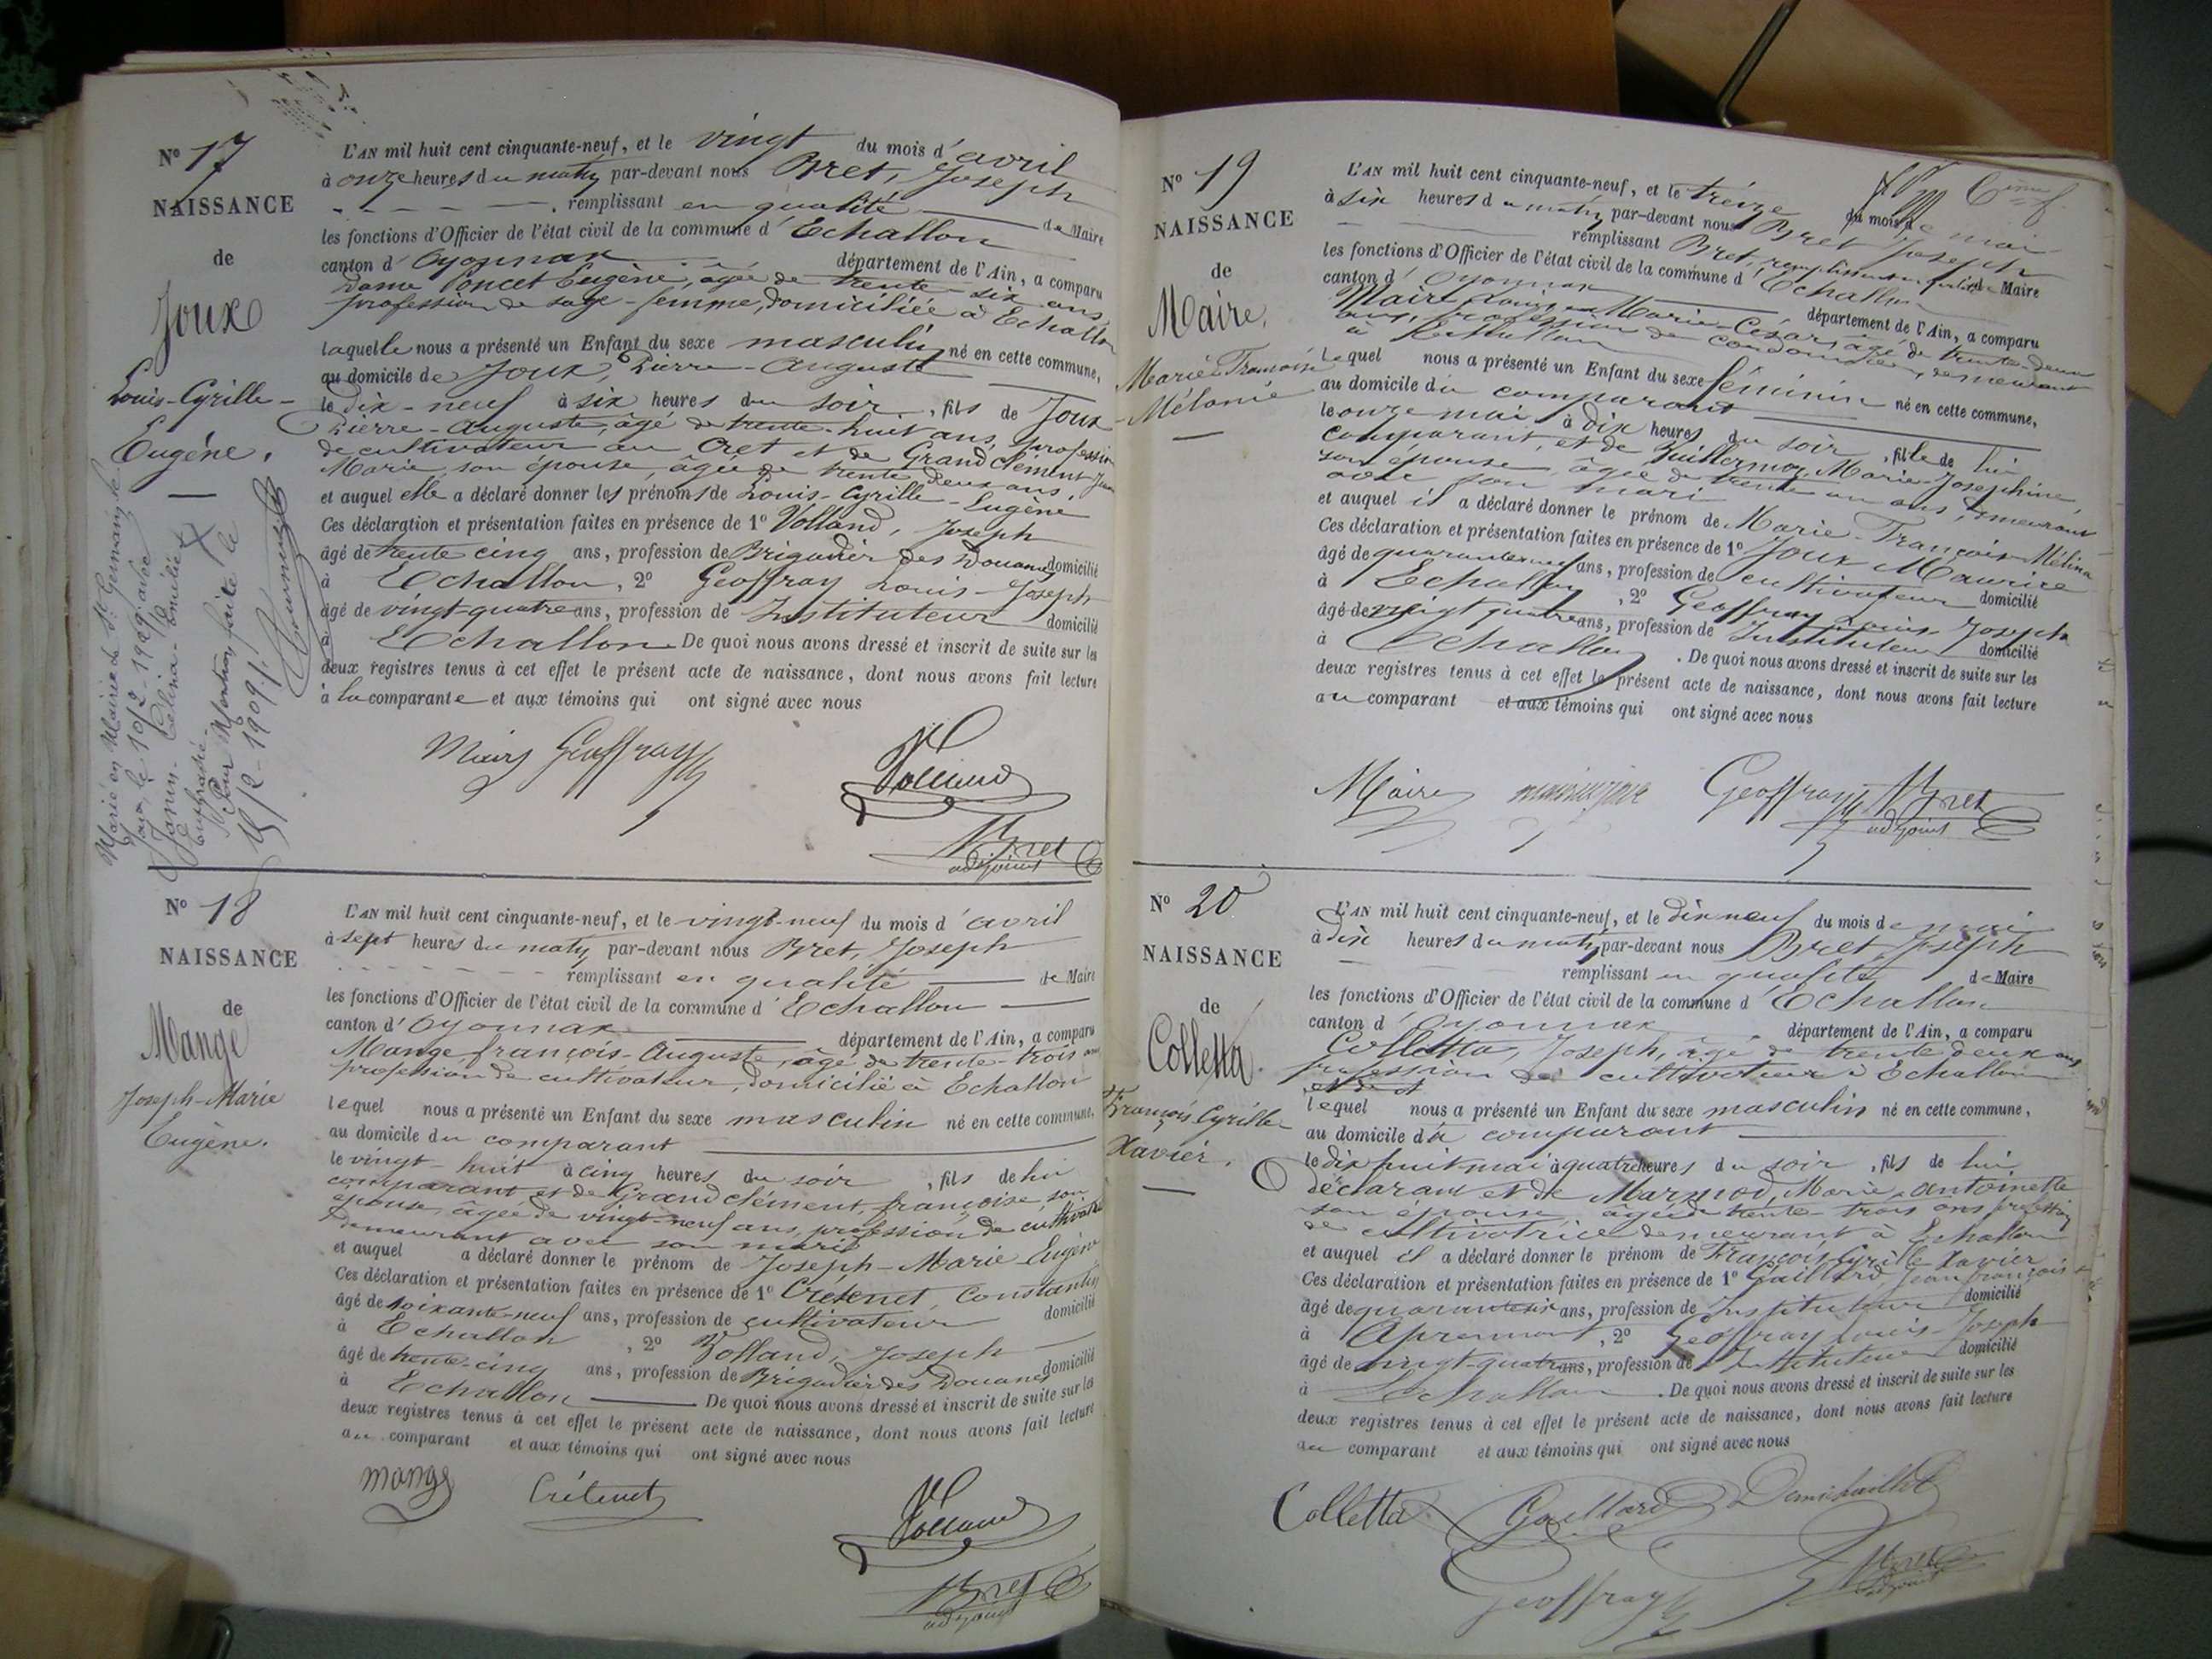 N° 17
NAISSANCE
de
Joux
Louis-Cyrille-
Eugène.
Marié en Mairie de St Germain de
Joux, le 10/2-1909 avec
Janin-Célina-Emilie
Euphrasie.
Pour Mention faite le
15/2-1909./.
L'AN mil huit cent cinquante-neuf, et le vingt du mois d'avril
à onze heures du matin par-devant nous Bret, Joseph
remplissant en qualité de Maire
les fonctions d'Officier de l'état civil de la commune d'Echallon
canton d'Oyonnax département de l'Ain, a comparu
Dame Poncet Eugénie, âgée de trente-six ans
profession de sage-femme, domiciliée à Echallon
laquelle nous a présenté un Enfant du sexe masculin né en cette commune,
au domicile de Joux, Pierre-Auguste
le dix-neuf à six heures du soir, fils de Joux
Pierre-Auguste, âgé de trente-huit ans, profession
de cultivateur au Cret et de Grandclément
Marie, son épouse, âgée de trente deux ans,
et auquel elle a déclaré donner les prénoms de Louis-Cyrille-Eugène
Ces déclaration et présentation faites en présence de 1° Volland, Joseph
âgé de trente cinq ans, profession de Brigadier des Douanes domicilié
à Echallon, 2° Geoffray Louis-Joseph
âgé de vingt-quatre ans, profession de Instituteur domicilié
à Echallon De quoi nous avons dressé et inscrit de suite sur les
deux registres tenus à cet effet le présent acte de naissance, dont nous avons fait lecture
à la comparante et aux témoins qui ont signé avec nous
Geoffray
Volland
Bret
adjoint
N° 18
NAISSANCE
de
Mange
Joseph-Marie
Eugène.
L'AN mil huit cent cinquante-neuf, et le vingt-neuf du mois d'avril
à sept heures du matin par-devant nous Bret, Joseph
remplissant en qualité de Maire
les fonctions d'Officier de l'état civil de la commune d'Echallon
canton d'Oyonnax département de l'Ain, a comparu
Mange françois-Auguste, âgé de trente-trois ans
profession de cultivateur, domicilié à Echallon
lequel nous a présenté un Enfant du sexe masculin né en cette commune,
au domicile du comparant
le vingt-huit à cinq heures du soir, fils de lui
comparant et de Grandclément, françoise, son
épouse, âgée de vingt-neuf ans, profession de cultivatrice
demeurant avec son mari
et auquel a déclaré donner le prénom de Joseph-Marie-Eugène
Ces déclaration et présentation faites en présence de 1° Crétenet, Constantin
âgé de soixante-neuf ans, profession de cultivateur domicilié
à Echallon, 2° Volland, Joseph
âgé de trente-cinq ans, profession de Brigadier des Douanes domicilié
à Echallon De quoi nous avons dressé et inscrit de suite sur les
deux registres tenus à cet effet le présent acte de naissance, dont nous avons fait lecture
au comparant et aux témoins qui ont signé avec nous
mange Crétenet
Volland
Bret
adjoint
N° 19
NAISSANCE
de
Maire,
Marie-Françoise
-Mélanie
L'AN mil huit cent cinquante-neuf, et le treize du mois de mai
à six heures du matin par-devant nous Bret Joseph
remplissant Bret, remplissant en qualité de Maire
les fonctions d'Officier de l'état civil de la commune d'Echallon
canton d'Oyonnax département de l'Ain, a comparu
Maire Marie-César, âgé de trente-deux
ans, profession de cordonnier, demeurant
à Echallon
lequel nous a présenté un Enfant du sexe féminin né en cette commune,
au domicile du comparant
le onze mai à dix heures du soir, fille de lui
comparant, et de Guillermoz, Marie-Josephine
son épouse, âgée de trente un ans, demeurant
avec son mari
et auquel il a déclaré donner le prénom de Marie-Françoise-Mélina
Ces déclaration et présentation faites en présence de 1° Joux Maurice
âgé de quarante neuf ans, profession de cultivateur domicilié
à Echallon, 2° Geoffray Louis-Joseph
âgé de vingt quatre ans, profession de Instituteur domicilié
à Echallon. De quoi nous avons dressé et inscrit de suite sur les
deux registres tenus à cet effet le présent acte de naissance, dont nous avons fait lecture
au comparant et aux témoins qui ont signé avec nous
Maire Geoffray Bret
adjoint
N° 20
NAISSANCE
de
Colletta.
François Cyrille-
Xavier.
L'AN mil huit cent cinquante-neuf, et le dix neuf du mois de mai
à dix heures du matin par-devant nous Bret, Joseph
remplissant en qualité de Maire
les fonctions d'Officier de l'état civil de la commune d'Echallon
canton d'Oyonnax département de l'Ain, a comparu
Colletta, Joseph, âgé de trente deux ans
profession de cultivateur à Echallon
lequel nous a présenté un Enfant du sexe masculin né en cette commune,
au domicile du comparant
le dix huit mai à quatre heures du soir, fils de lui
déclarant et de Marie-antoinette
son épouse âgée de trente-trois ans profession
de cultivatrice demeurant à Echallon
et auquel il a déclaré donner le prénom de François Cyrille Xavier
Ces déclaration et présentation faites en présence de 1° Gaillard, Jean françois
âgé de ans, profession de Instituteur domicilié
à Apremont, 2° Geoffray Louis-Joseph
âgé de vingt-quatre ans, profession de Instituteur domicilié
à Echallon. De quoi nous avons dressé et inscrit de suite sur les
deux registres tenus à cet effet le présent acte de naissance, dont nous avons fait lecture
au comparant et aux témoins qui ont signé avec nous
Colletta Gaillard
Geoffray Bret
adjoint